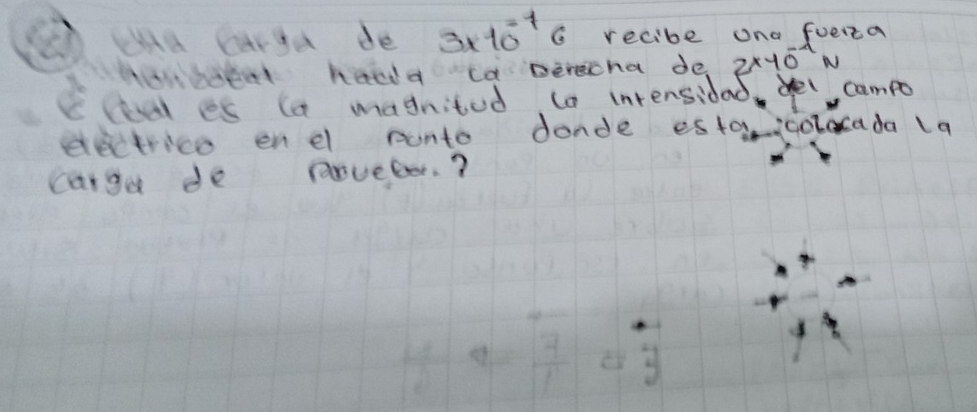 una carga de 3x10⁻⁷ C recibe una fuerza
horizontal hacia la Derecha de 2x10⁻⁴ N
¿ cual es la magnitud la intensidad del campo
electrico en el punto donde esta colocada la
carga de prueba.?